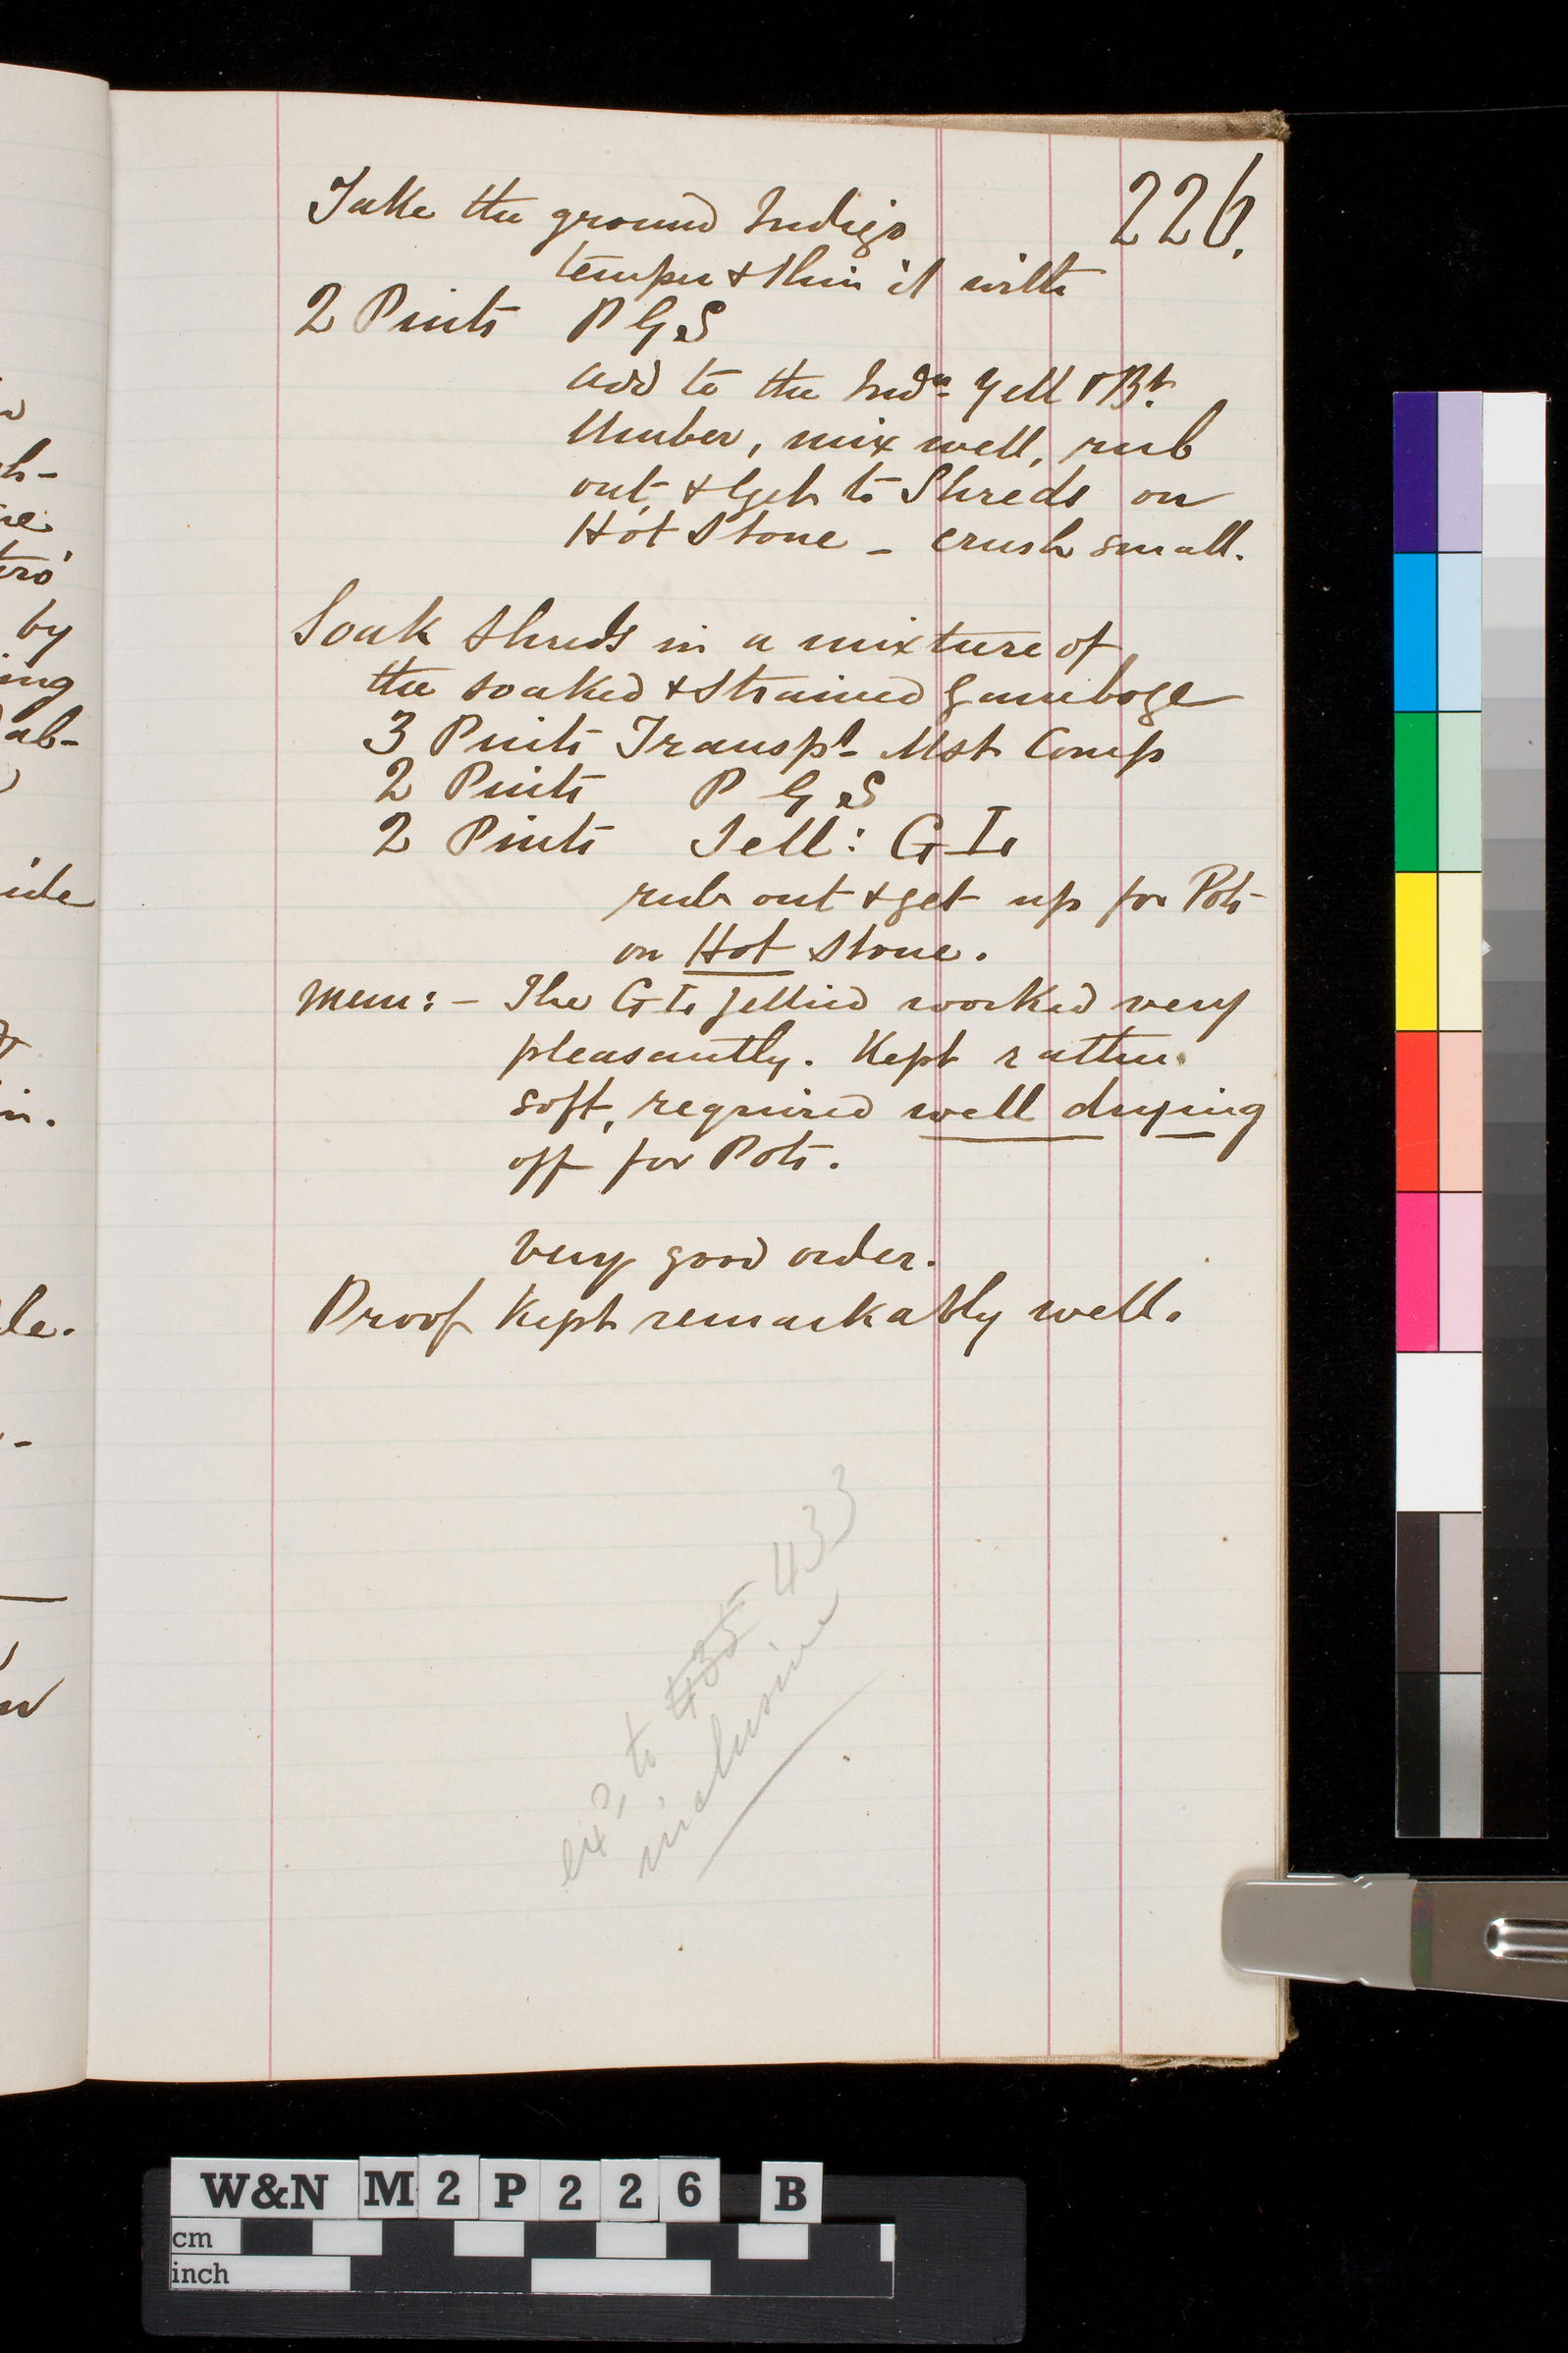 226.
Take the ground Indigo
temper & thin it with
2 Pints P G S
add to the Indn Yell & Bt
Umber, mix well, rub
out, & Get to Shreds on
Hot Stone - crush small.
Soak Shreds in a mixture of
the soaked & strained Gamboge
3 Pints Transpt Mst Comp
2 Pints P G S
2 Pints Jell: G I.
rub out & get up for Pots
on Hot Stone.
Mem: - The G I. Jellied worked very
pleasantly. Kept rather
soft, required well drying
off for Pots.
Very good order.
Proof Kept remarkably well.
exd to 435 433
inclusive
by
ing
ab-
ide
le.
W&N M2P226 B
cm
inch